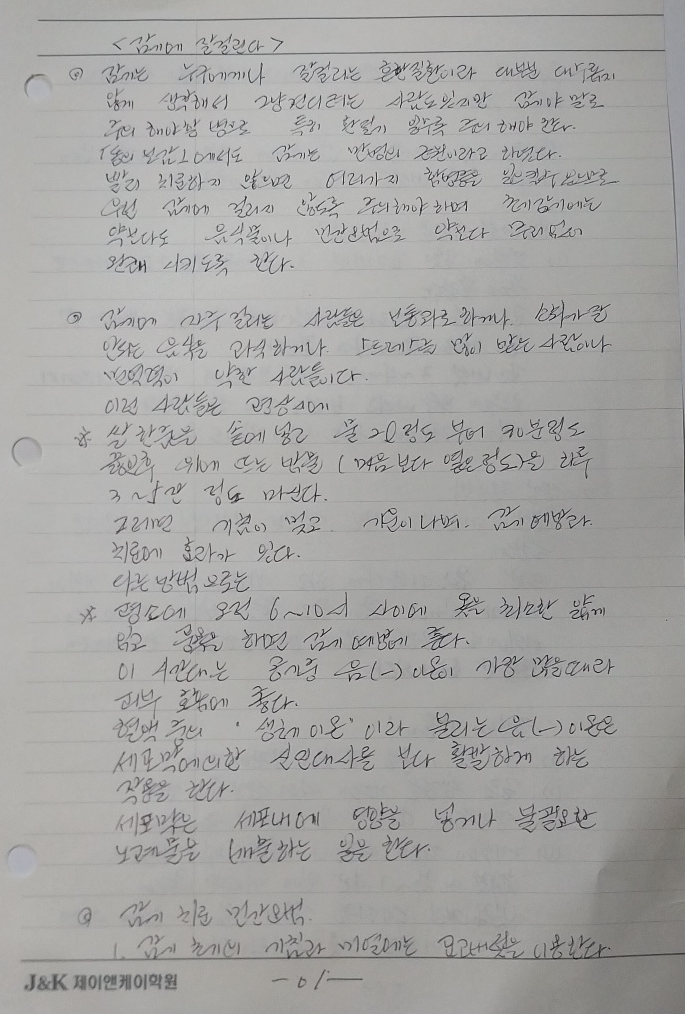 < 감기에 잘걸린다 >
◎ 감기는 누구에게나 잘걸리는 흔한질환이라 대부분 대수롭지
않게 생각해서 그냥견디려는 사람도있지만 감기야 말로
주의 해야할 병으로 특히 환절기 일수록 주의 해야 한다.
에서도 감기는 만병의 근원이라고 하였다.
빨리 치료하지 않으면 여러가지 합병증을 일으킬수 있으므로
우선 감기에 걸리지 않도록 주의해야하며 초기감기에는
약보다도 음식물이나 민간요법으로 약보다 무리없이
완쾌 시키도록 한다.
◎ 감기에 자주걸리는 사람들은 보통과로하거나. 소화가잘
안되는 음식을 과식하거나 스트레스를 많이 받는사람이나
면역력이 약한 사람들이다.
이런 사람들은 평상시에
※ 쌀 한줌을 솥에 넣고 물 2ℓ정도 부어 30분정도
끓인후 위에 뜨는 밥물 ( 미음보다 옅은정도)을 하루
3~ 정도 마신다.
그러면 기침이 멎고. 기운이나며. 감기예방과.
치료에 효과가 있다.
다른방법으로는
※ 평소에 오전 6~10시 사이에 옷을 최소한 얇게
입고 을 하면 감기 예방에 좋다.
이 시간대는 공기중 음(-)이온이 가장 많을때라
피부 호흡에 좋다.
혈액 중의 '생체이온' 이라 불리는 음(-)이온은
세포막에의한 신진대사를 보다 활발하게 하는
작용을 한다.
세포막은 세포내에 영양을 넣거나 불필요한
노폐물을 배출하는 일을 한다.
◎ 감기 치료 민간요법.
1. 감기 초기의 기침과 미열에는 표고버섯을 이용한다.
J&K 제이앤케이학원
-01-